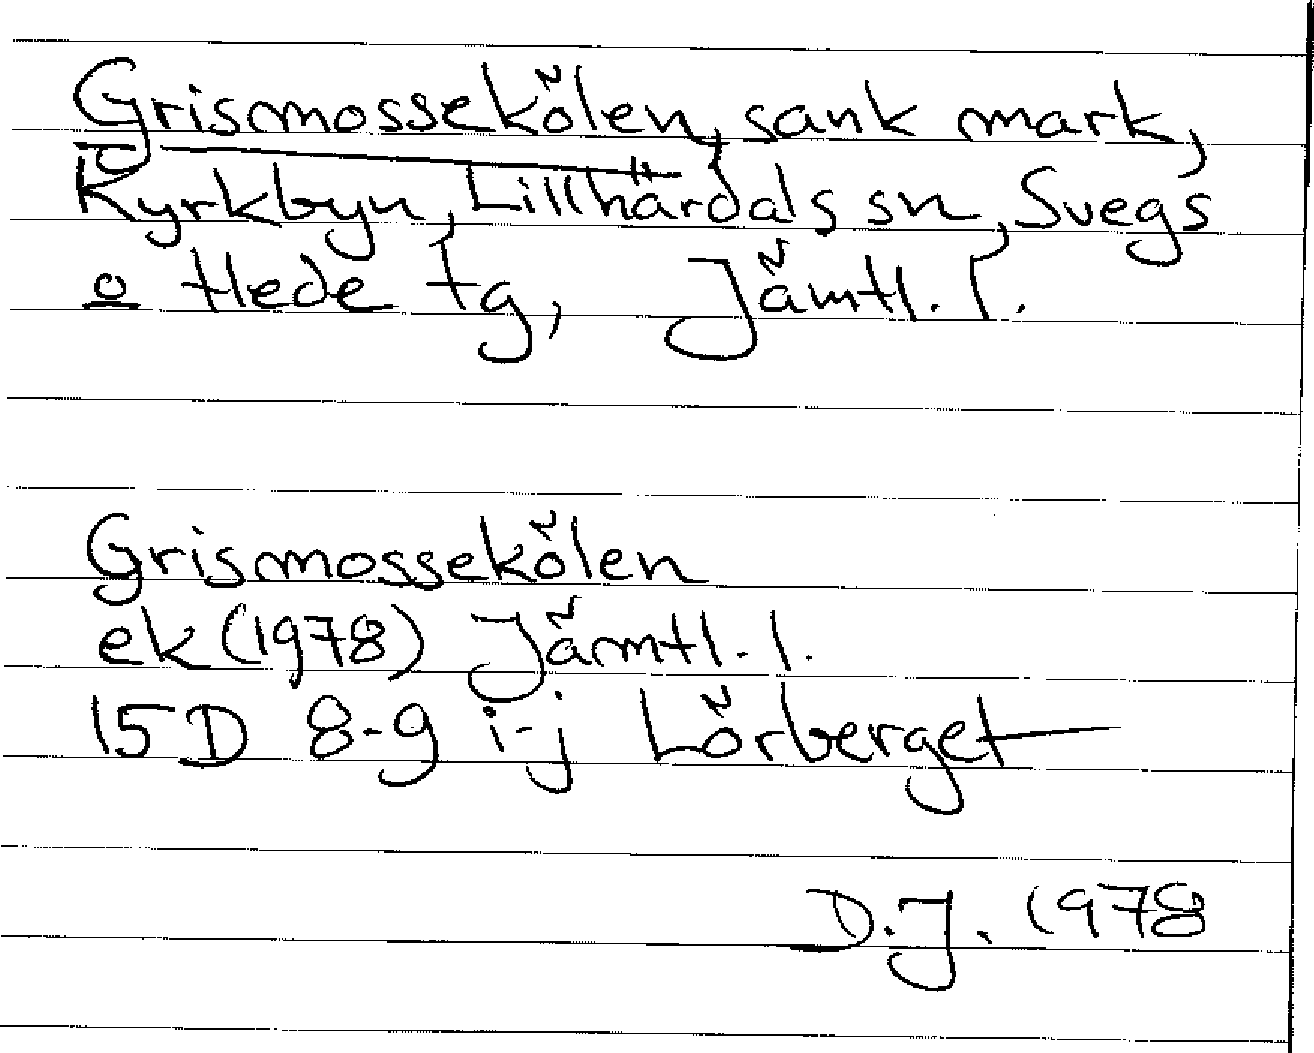 Grismossekölen, sank mark,
Kyrkbyn, Lillhärdals sn, Svegs
o Hede tg, Jämtl. l.
Grismossekölen
ek (1978) Jämtl. l.
15D 8-9 i-j Lörberget
D.J. 1978